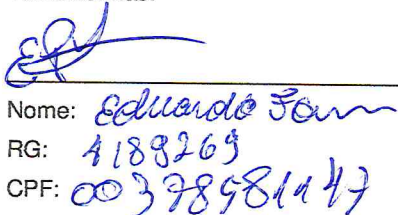 Nome: Eduardo
RG: 4189269
CPF: 00378581147